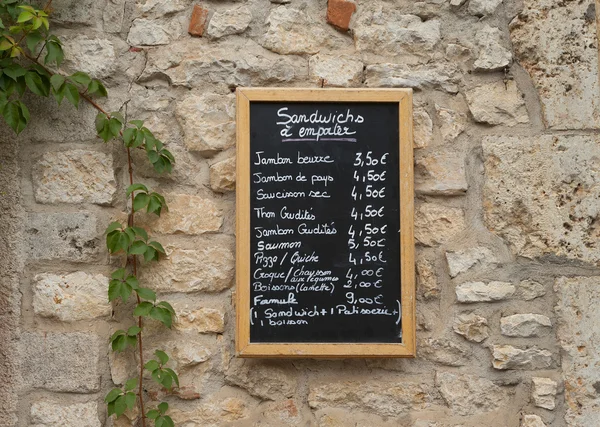 Sandwichs
à emporter
Jambon beurre 3,50€
Jambon de pays 4,50€
Saucisson sec 4,50€
Thon Crudités 4,50€
Jambon Crudités 4,50€
Saumon 5,50€
Pizza / Quiche 4,50€
Croque / chausson aux légumes 4,00€
Boissons (Canette) 2,00€
Formule 9,00€
(1 Sandwich + 1 Patisserie +
1 boisson)